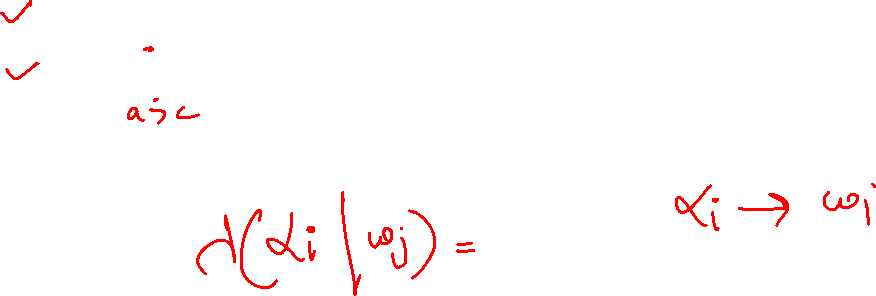 ✓
✓
a>c
λ(αi | ωj) =
αi → ωi